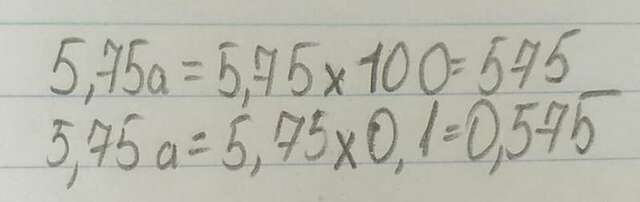 5,75a = 5,75 x 100 = 575
5,75a = 5,75 x 0,1 = 0,575